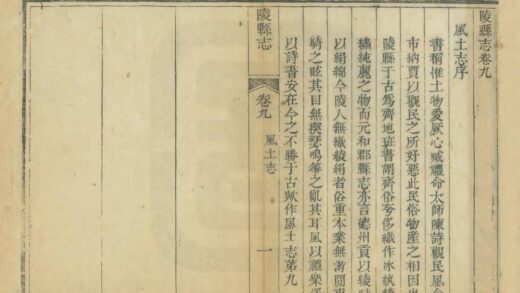 陵縣志卷九
風土志序
書稱惟土物愛厥心臧禮命太師陳詩觀民風
市納賈以觀民之所好惡此民俗物產之相因
陵縣于古爲齊地班書謂齊俗夸侈織作冰紈
繡純麗之物而元和郡縣志亦言德州貢以綾
以絹綿今陵人無織綾絹者俗重本業無游閒
綺之眩其目無揳瑟鳴箏之亂其耳風以禮樂
以詩書安在今之不勝于古歟作風土志第九
陵縣志
卷九
風土志
一